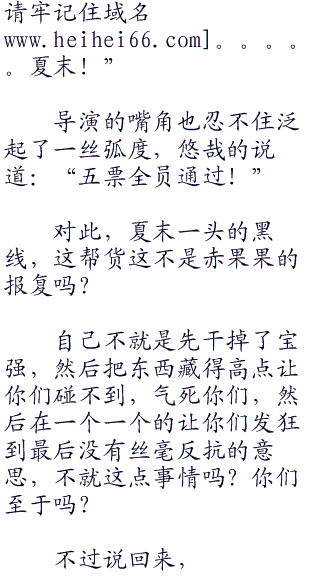 请牢记住域名
www.heihei66.com]。。。。
。夏末！”
导演的嘴角也忍不住泛
起了一丝弧度，悠哉的说
道：“五票全员通过！”
对此，夏末一头的黑
线，这帮货这不是赤果果的
报复吗？
自己不就是先干掉了宝
强，然后把东西藏得高点让
你们碰不到，气死你们，然
后在一个一个的让你们发狂
到最后没有丝毫反抗的意
思，不就这点事情吗？你们
至于吗？
不过说回来，